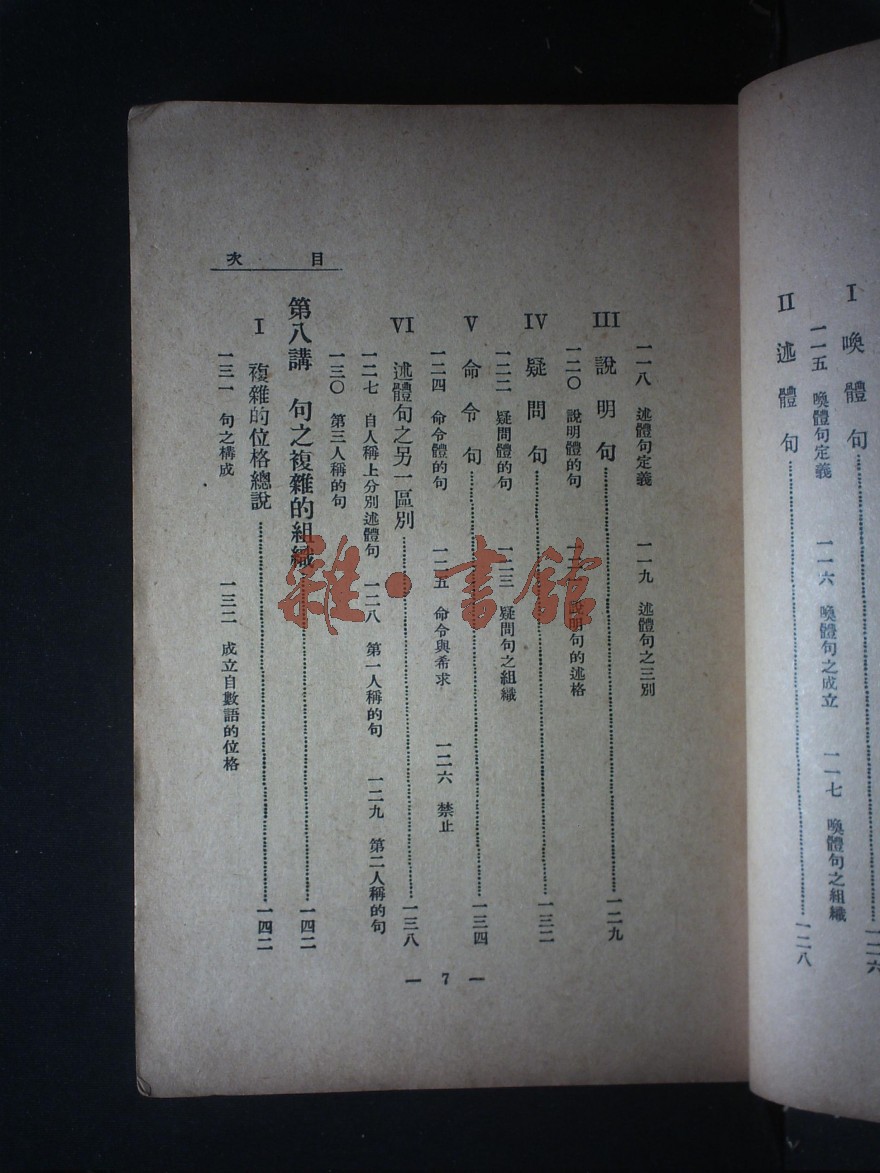 I 喚體句 一二六
一一五 喚體句定義 一一六 喚體句之成立 一一七 喚體句之組織
II 述體句 一二八
目次
一一八 述體句定義 一一九 述體句之三別
III 說明句 一二九
一二〇 說明體的句 一二一 說明句的述格
IV 疑問句 一三二
一二二 疑問體的句 一二三 疑問句之組織
V 命令句 一三四
一二四 命令體的句 一二五 命令與希求 一二六 禁止
VI 述體句之另一區別 一三八
一二七 自人稱上分別述體句 一二八 第一人稱的句 一二九 第二人稱的句
一三〇 第三人稱的句
第八講 句之複雜的組織 一四二
I 複雜的位格總說 一四二
一三一 句之構成 一三二 成立自數語的位格
— 7 —
雜·書館